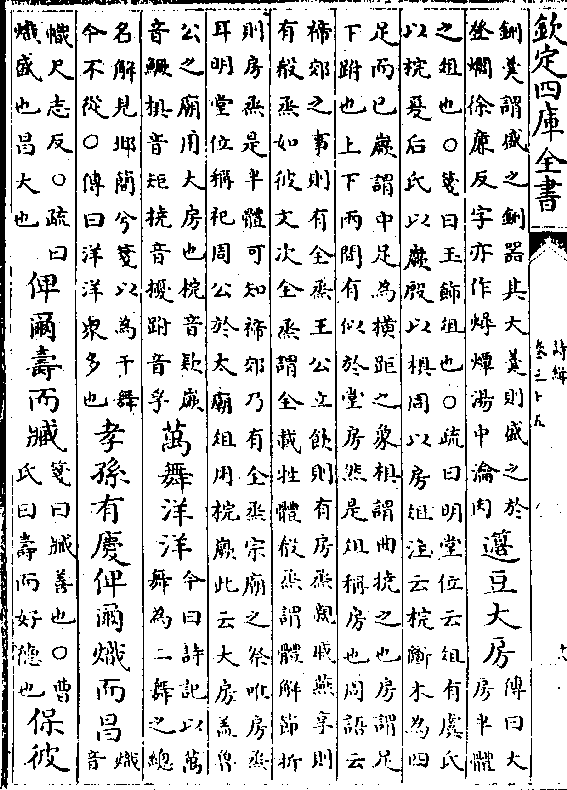 欽定四庫全書
鉶羹謂盛之鉶器其大羹則盛之於
登爓徐廉反字亦作燖爓湯中瀹肉
籩豆大房
傳曰大
房半體
之俎也○箋曰玉飾俎也○疏曰明堂位云俎有虞氏
以梡夏后氏以嶡殷以椇周以房俎注云梡斷木為四
足而已嶡謂中足為橫距之象椇謂曲撓之也房謂足
下跗也上下兩間有似於堂房然是俎稱房也周語云
禘郊之事則有全烝王公立飫則有房烝親戚燕享則
有殽烝如彼文次全烝謂全載牲體殽烝謂體解節折
則房烝是半體可知禘郊乃有全烝宗廟之祭唯房烝
耳明堂位稱祀周公於太廟俎用梡嶡此云大房蓋魯
公之廟用大房也梡音欵嶡
音鱖椇音矩撓音擾跗音孚
萬舞洋洋
今曰詩記以萬
舞為二舞之總
名解見邶簡兮箋以為干舞
今不從○傳曰洋洋衆多也
孝孫有慶俾爾熾而昌
熾
音
幟尺志反○疏曰
熾盛也昌大也
俾爾壽而臧
箋曰臧善也○曹
氏曰壽而好德也
保彼
詩緝
卷三十五